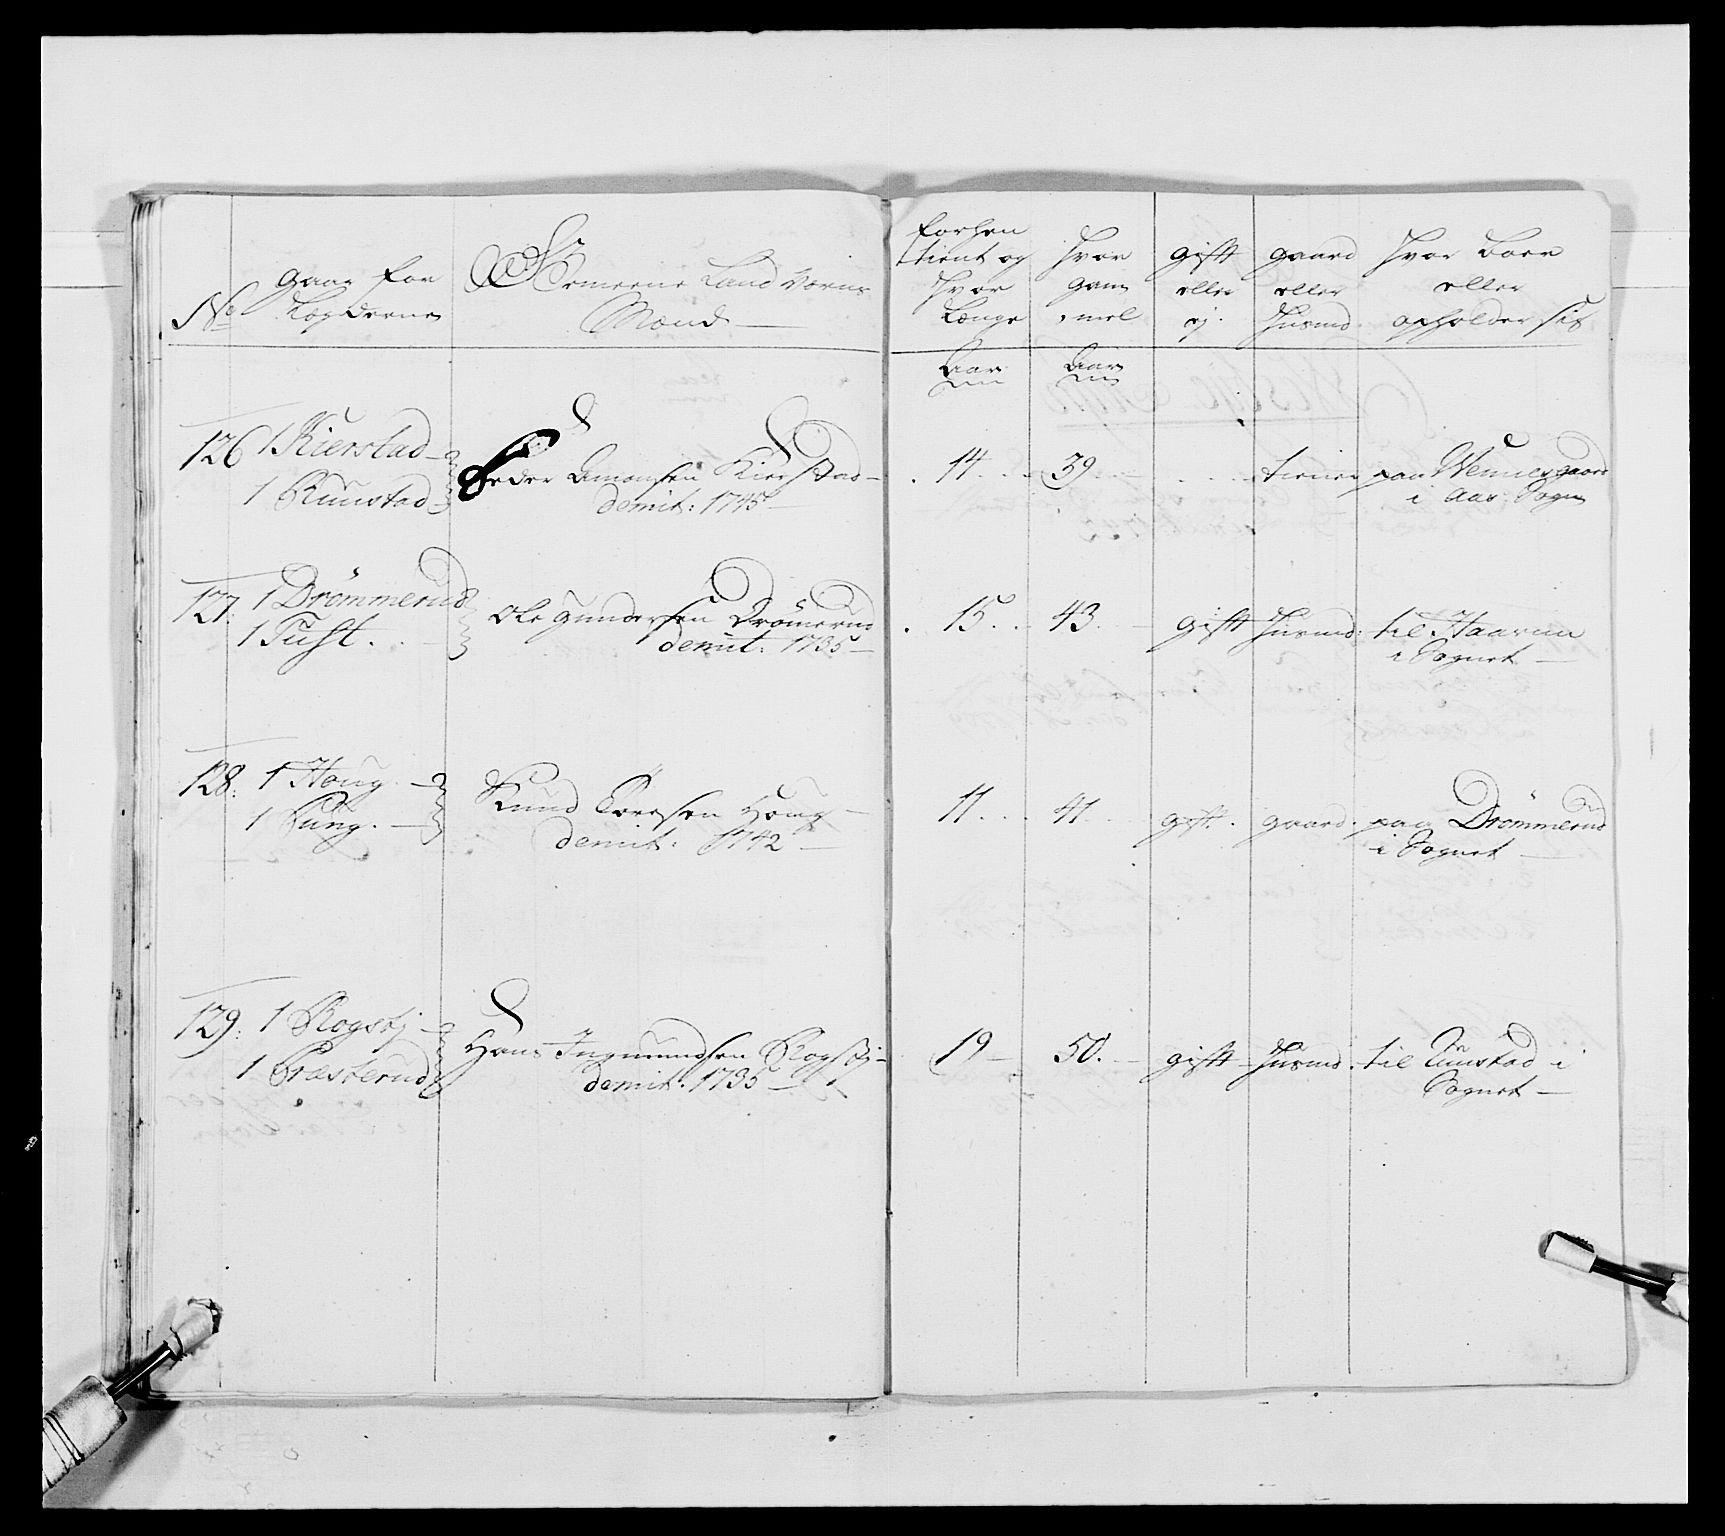 No
gaar for
Lægderne
Gemeene Land Værns
Mænd
forhen
tient og
hvor
længe
Hvor
gam
mel
gift
eller
ej.
gaard
eller
Husmd.
Hvor boer
eller
opholder sig
Aar
Aar
126 1 Kierstad
1 Ruustad
Peder Amonsen Kierstad
demit: 1745
14 39 tiener paa Wennersgaard
i Aas Sogn
127: 1 Drömmerud
1 Tuft.
Ole gundersen Drömerud
demit: 1735
15 43 gift Husmd: til Haarum
i Sognet
128: 1 Houg
1 Pung.
Knud Toresen Houg
demit: 1742
11 41 gift gaard paa Drömmerud
i Sognet
129: 1 Rogstj
1 Præsterud
Hans Ingmundsen Rogstj
demit: 1735
19 50. gift Husmd. til Ruustad i
Sognet